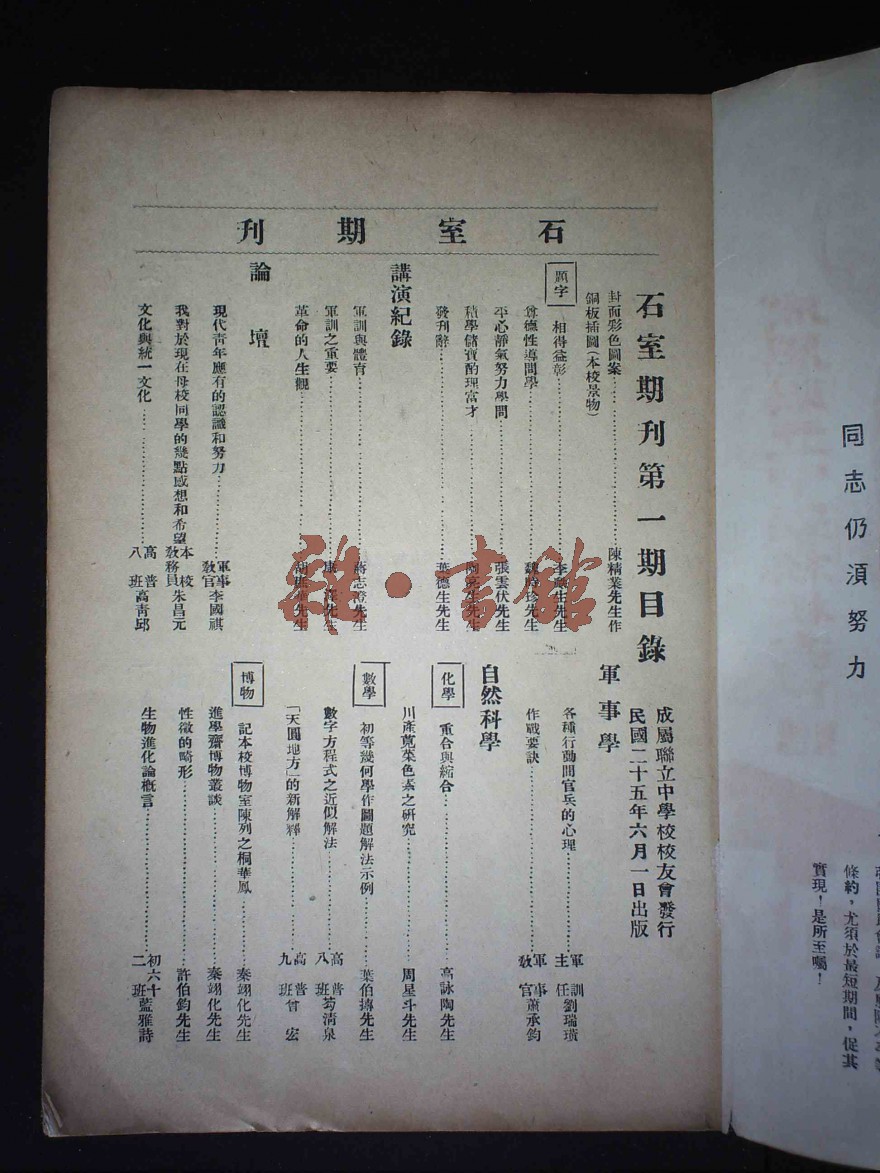 石室期刊
石室期刊第一期目錄
成屬聯立中學校校友會發行
民國二十五年六月一日出版
封面彩色圖案……陳精業先生作
銅板插圖(本校景物)
題字
相得益彰……先生
尊德性導問學……先生
平心靜氣努力學問……張雲伏先生
積學儲寶酌理富才……先生
發刊辭……葉德生先生
講演紀錄
軍訓與體育……蔣志澄先生
軍訓之重要……先生
革命的人生觀……先生
論壇
現代青年應有的認識和努力……軍事教官李國祺
我對於現在母校同學的幾點感想和希望 本校教務員朱昌元
文化與統一文化……高普八班高青邱
軍事學
各種行動間官兵的心理……軍訓主任劉瑞璜
作戰要訣……軍事教官蕭承鈞
自然科學
化學
重合與縮合……高詠陶先生
川產莧菜色素之研究……周星斗先生
數學
初等幾何學作圖題解法示例……葉伯摶先生
數字方程式之近似解法……高普八班苟清泉
「天圓地方」的新解釋……高普九班曾宏
博物
記本校博物室陳列之桐華鳳……秦翊化先生
進學齋博物叢談……秦翊化先生
性徵的畸形……許伯鈞先生
生物進化論概言……初六十二班藍雅詩
雜·書館
同志仍須努力
條約,尤須於最短期間,促其
實現!是所至囑!